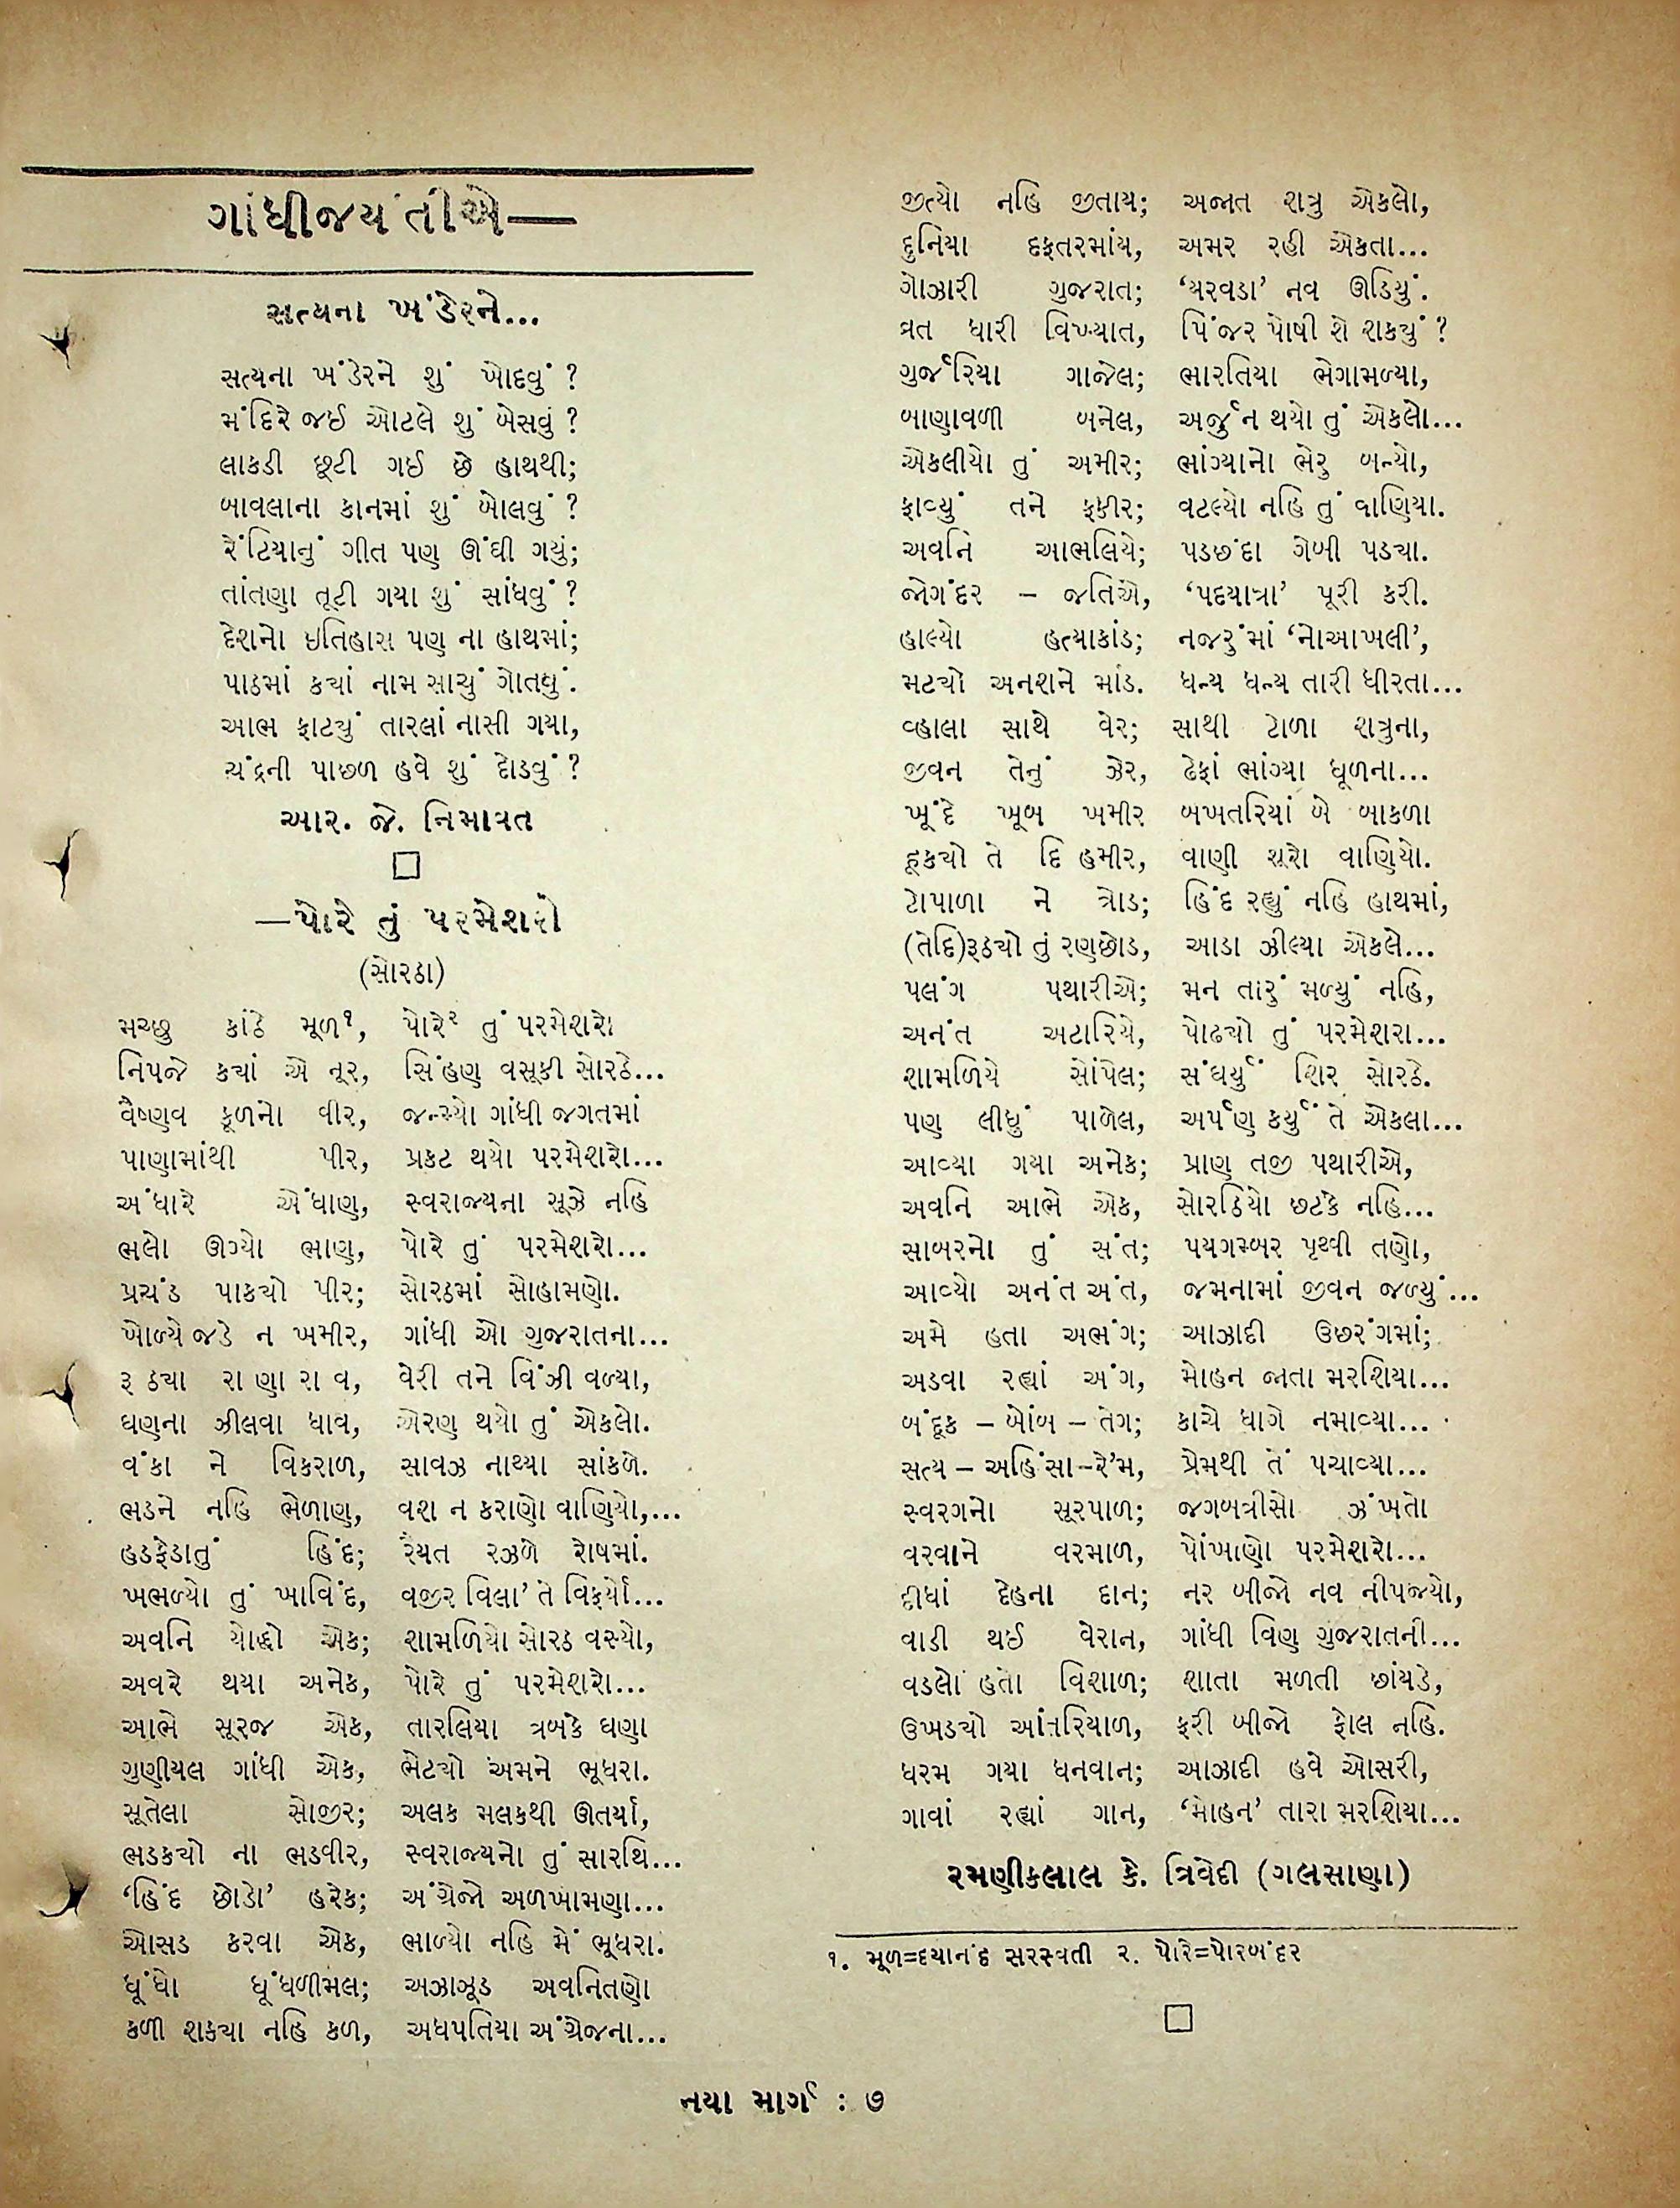 ગાંધીજયંતીએ—
સત્યના ખંડેરને...
સત્યના ખંડેરને શું ખોદવું ?
મંદિરે જઈ ઓટલે શું બેસવું ?
લાકડી છૂટી ગઈ છે હાથથી;
બાવલાના કાનમાં શું બોલવું ?
રેંટિયાનું ગીત પણ ઊંઘી ગયું;
તાંતણા તૂટી ગયા શું સાંધવું ?
દેશનો ઇતિહાસ પણ ના હાથમાં;
પાઠમાં ક્યાં નામ સાચું ગોતવું.
આભ ફાટ્યું તારલાં નાસી ગયા,
ચંદ્રની પાછળ હવે શું દોડવું ?
આર. જે. નિમાવત
—પોરે તું પરમેશરો
(સોરઠા)
મચ્છુ કાંઠે મૂળ૧, પોરે૨ તું પરમેશરો
નિપજે ક્યાં એ નૂર, સિંહણ વસૂકી સોરઠે...
વૈષ્ણવ કૂળનો વીર, જન્મ્યો ગાંધી જગતમાં
પાણામાંથી પીર, પ્રકટ થયો પરમેશરો...
અંધારે એંધાણ, સ્વરાજ્યના સૂઝે નહિ
ભલો ઊગ્યો ભાણ, પોરે તું પરમેશરો...
પ્રચંડ પાક્યો પીર; સોરઠમાં સોહામણો.
ખોળ્યે જડે ન ખમીર, ગાંધી ઓ ગુજરાતના...
રૂઠ્યા રાણા રાવ, વેરી તને વિંઝી વળ્યા,
ઘણના ઝીલવા ઘાવ, એરણ થયો તું એકલો.
વંકા ને વિકરાળ, સાવઝ નાથ્યા સાંકળે.
ભડને નહિ ભેળાણ, વશ ન કરાણો વાણિયો,...
હડફેડાતું હિંદ; રૈયત રઝળે રોષમાં.
ખભળ્યો તું ખાવિંદ, વજીર વિલા' તે વિફર્યો...
અવનિ યોદ્ધો એક; શામળિયો સોરઠ વસ્યો,
અવરે થયા અનેક, પોરે તું પરમેશરો...
આભે સૂરજ એક, તારલિયા ત્રબકે ઘણા
ગુણીયલ ગાંધી એક, ભેટ્યો અમને ભૂધરા.
સૂતેલા સોજીર; અલક મલકથી ઊતર્યા,
ભડક્યો ના ભડવીર, સ્વરાજ્યનો તું સારથિ...
‘હિંદ છોડો’ હરેક; અંગ્રેજો અળખામણા...
ઓસડ કરવા એક, ભાળ્યો નહિ મેં ભૂધરા.
ધૂંધો ધૂંધળીમલ; અઝાઝૂડ અવનિતણો
કળી શક્યા નહિ કળ, અધપતિયા અંગ્રેજના...
જીત્યો નહિ જીતાય; અજાત શત્રુ એકલો,
દુનિયા દફતરમાંય, અમર રહી એકતા...
ગોઝારી ગુજરાત; ‘યરવડા’ નવ ઊડિયું.
વ્રત ધારી વિખ્યાત, પિંજર પોષી શે શક્યું ?
ગુર્જરિયા ગાજેલ; ભારતિયા ભેગામળ્યા,
બાણાવળી બનેલ, અર્જુન થયો તું એકલો...
એકલીયો તું અમીર; ભાંગ્યાનો ભેરુ બન્યો,
ફાવ્યું તને ફકીર; વટલ્યો નહિ તું વાણિયા.
અવનિ આભલિયે; પડછંદા ગેબી પડ્યા.
જોગંદર – જતિએ, ‘પદયાત્રા’ પૂરી કરી.
હાલ્યો હત્યાકાંડ; નજરુંમાં ‘નોઆખલી’,
મટ્યો અનશને માંડ. ધન્ય ધન્ય તારી ધીરતા...
વ્હાલા સાથે વેર; સાથી ટોળા શત્રુના,
જીવન તેનું ઝેર, ઢેફાં ભાંગ્યા ધૂળના...
ખૂંદે ખૂબ ખમીર બખતરિયાં બે બાકળા
હૂક્યો તે દિ હમીર, વાણી શૂરો વાણિયો.
ટોપાળા ને ત્રોડ; હિંદ રહ્યું નહિ હાથમાં,
(તેદિ)રૂઠ્યો તું રણછોડ, આડા ઝીલ્યા એકલે...
પલંગ પથારીએ; મન તારું મળ્યું નહિ,
અનંત અટારિયે, પોઢ્યો તું પરમેશરા...
શામળિયે સોંપેલ; સંઘર્યું શિર સોરઠે.
પણ લીધું પાળેલ, અર્પણ કર્યું તે એકલા...
આવ્યા ગયા અનેક; પ્રાણ તજી પથારીએ,
અવનિ આભે એક, સોરઠિયો છટકે નહિ...
સાબરનો તું સંત; પયગમ્બર પૃથ્વી તણો,
આવ્યો અનંત અંત, જમનામાં જીવન જળ્યું...
અમે હતા અભંગ; આઝાદી ઉછરંગમાં;
અડવા રહ્યાં અંગ, મોહન જાતા મરશિયા...
બંદૂક – બોંબ – તેગ; કાચે ધાગે નમાવ્યા...
સત્ય – અહિંસા–રે'મ, પ્રેમથી તેં પચાવ્યા...
સ્વરગનો સૂરપાળ; જગબત્રીસો ઝંખતો
વરવાને વરમાળ, પોંખાણો પરમેશરો...
દીધાં દેહના દાન; નર બીજો નવ નીપજ્યો,
વાડી થઈ વેરાન, ગાંધી વિણ ગુજરાતની...
વડલો હતો વિશાળ; શાતા મળતી છાંયડે,
ઉખડ્યો આંતરિયાળ, ફરી બીજો ફોલ નહિ.
ધરમ ગયા ધનવાન; આઝાદી હવે ઓસરી,
ગાવાં રહ્યાં ગાન, ‘મોહન’ તારા મરશિયા...
રમણીકલાલ કે. ત્રિવેદી (ગલસાણા)
૧. મૂળ=દયાનંદ સરસ્વતી ૨. પોરે=પોરબંદર
નયા માર્ગ : ૭